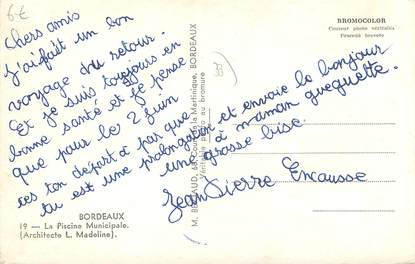 6€
Chers amis
J'ai fait un bon
voyage du retour.
Et je suis toujours en
bonne santé et je pense
que pour le 2 juin
ton départ à pas que
tu est une prolongation et envoie le bonjour
à maman gueguette.
une grosse bise.
Jean Pierre Encausse
BORDEAUX
19 - La Piscine Municipale.
(Architecte L. Madeline).
M. BERJAUD, Cours de la Martinique, BORDEAUX
Véritable photo au bromure
BROMOCOLOR
Couleur photo véritable
Procédé breveté